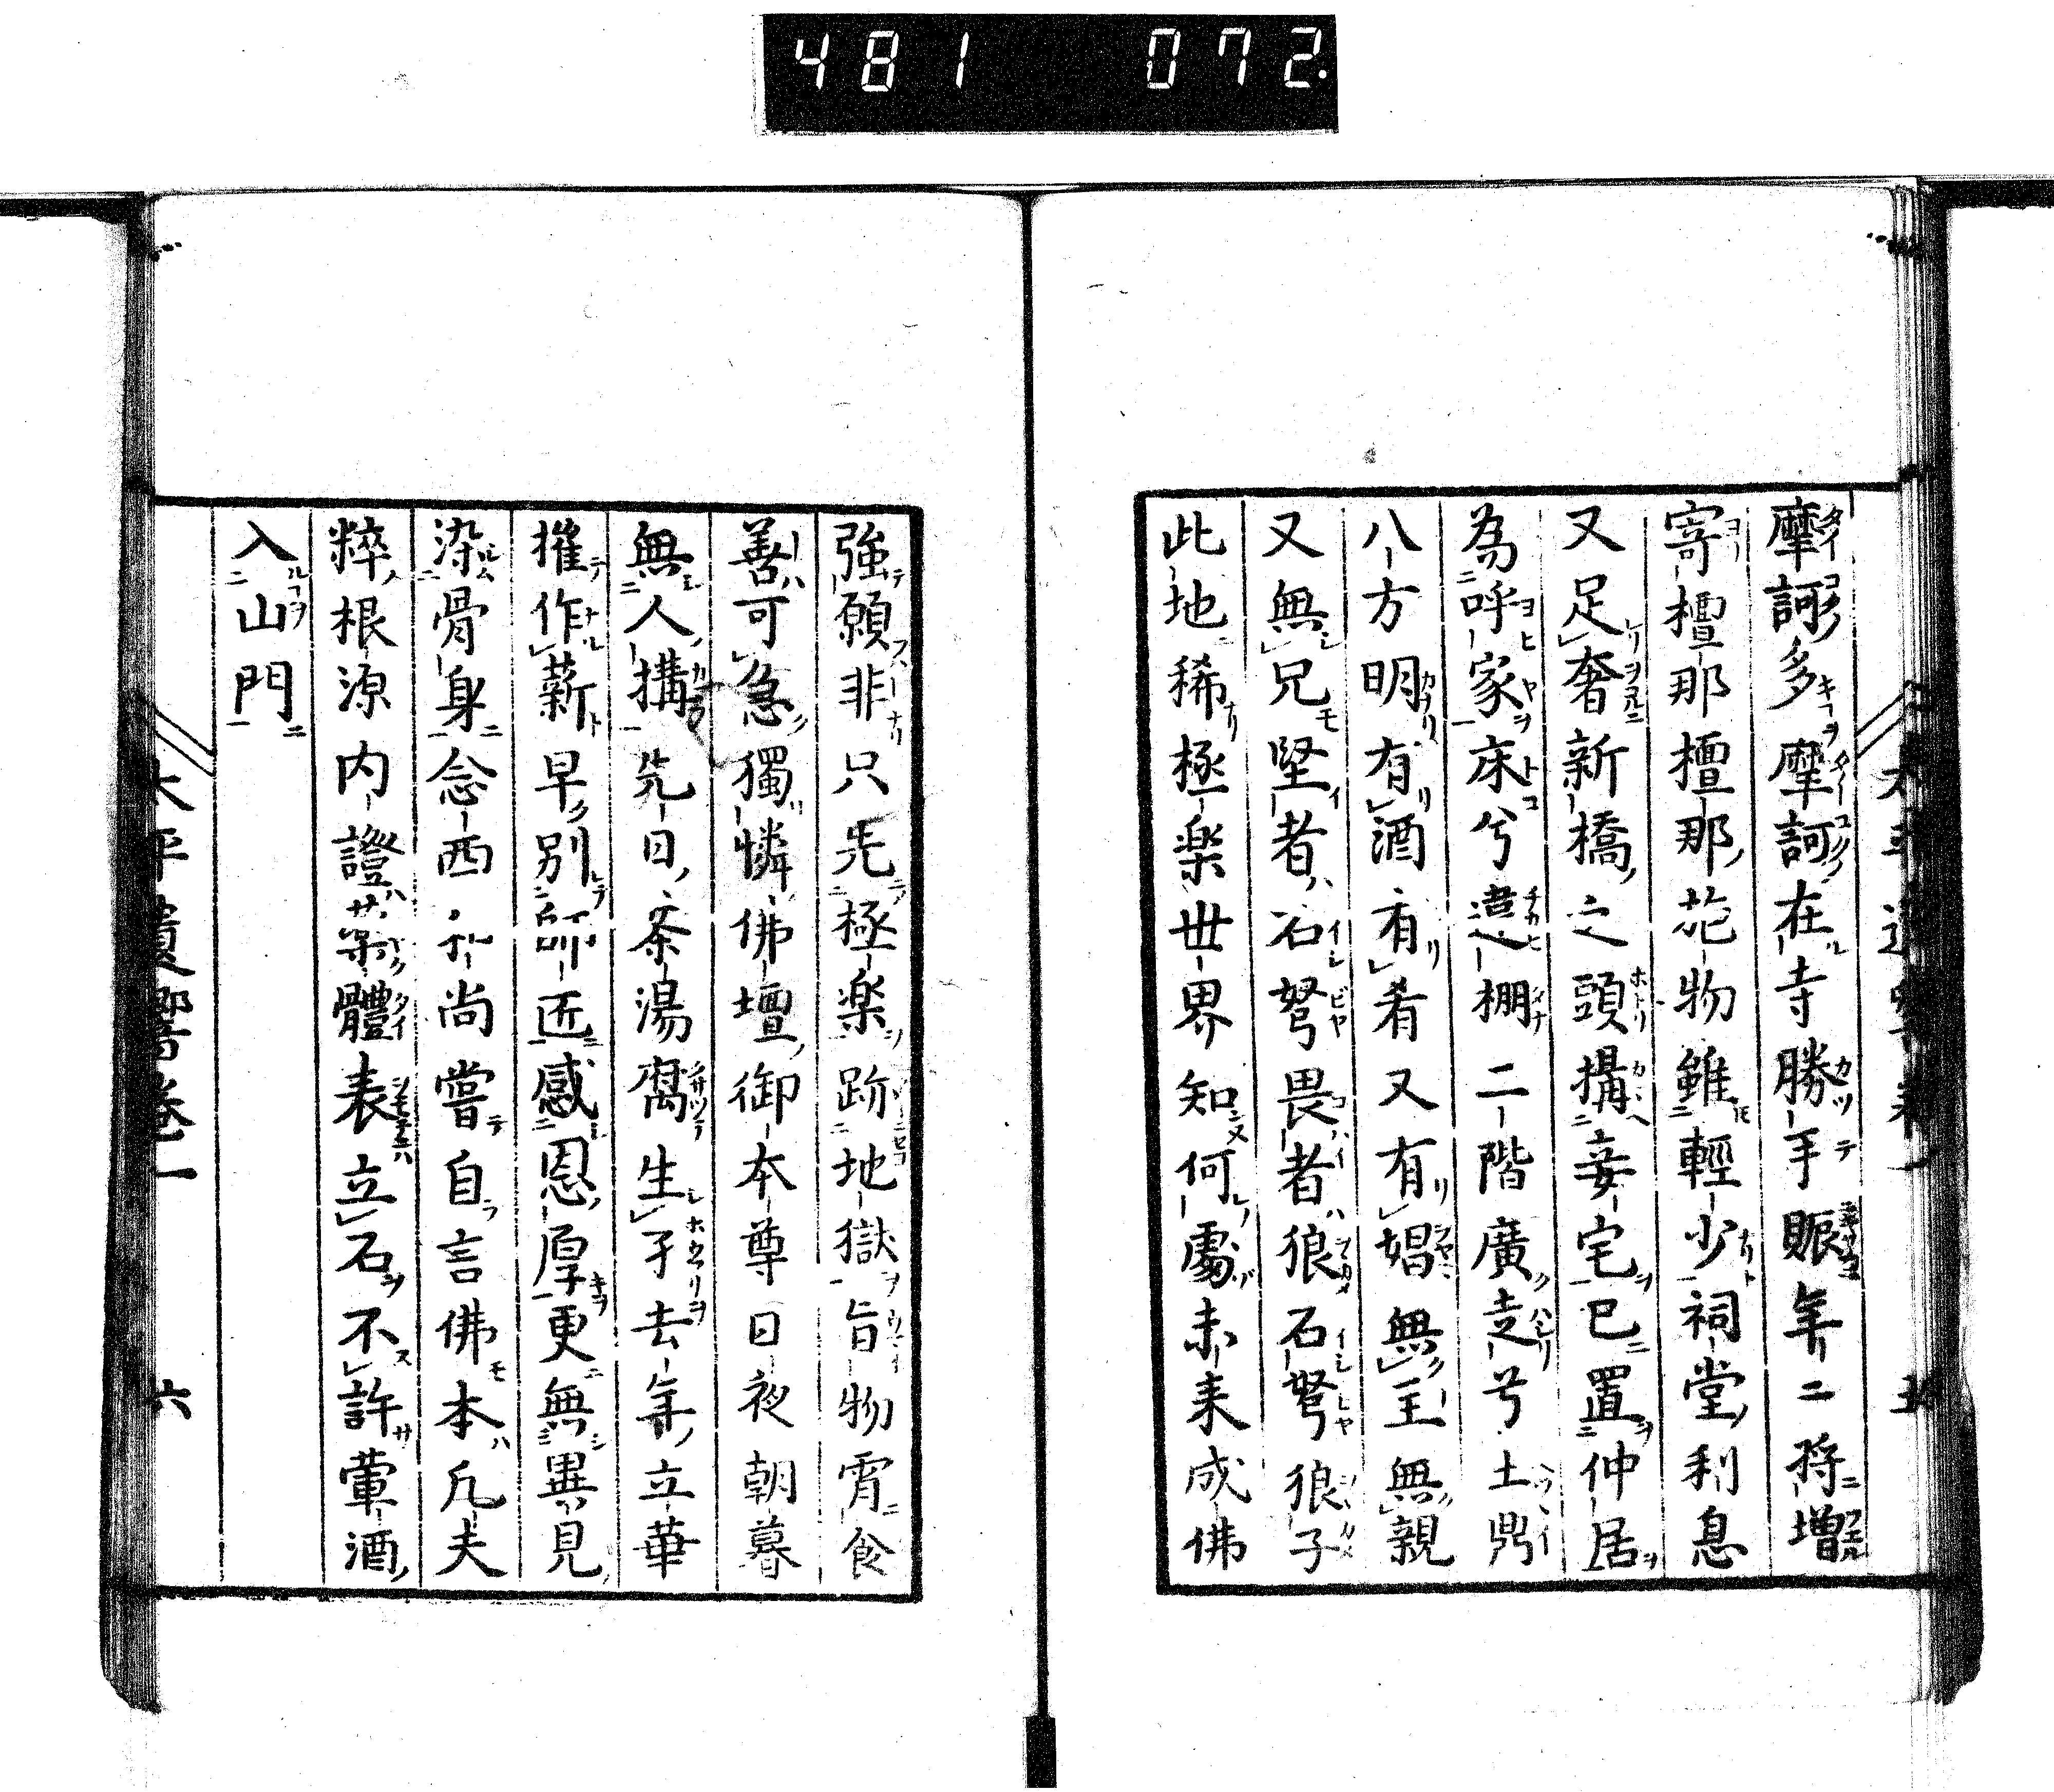 481 072.
摩訶多摩訶在寺勝手賑年二将増
寄檀那檀那花物雖輕少祠堂利息
又足奢新橋之頭搆妾宅已置仲居
為呼家床兮違棚二階廣走兮土鼎
八方明有酒有肴又有娼無主無親
又無兄堅者石弩畏者狼石弩狼子
此地稀極楽世界知何處未来成佛
強願非只先極楽跡地獄旨物宵食
善可急獨憐佛壇御本尊日夜朝暮
無人搆先日茶湯腐生孑去年立華
摧作薪早別師匠感恩厚更無異見
染骨身念西和尚嘗自言佛本凢夫
粹根源内證藥體表立石不許葷酒
入山門
太平遺響卷一 六